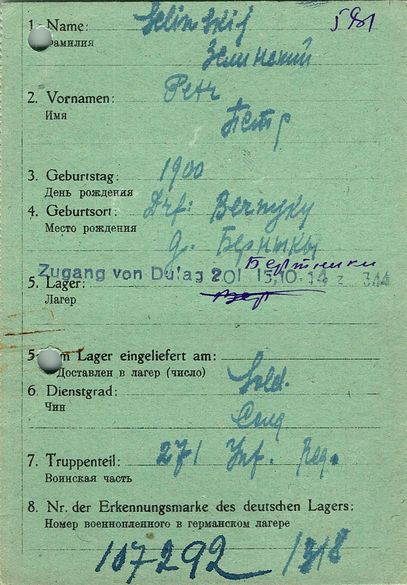 1. Name: Selinskij 591
Фамилия Зелинский
2. Vornamen: Petr
Имя Петр
3. Geburtstag: 1900
День рождения
4. Geburtsort: Drf:
Место рождения д.
Бертники
Zugang von Dulag 201 15.10.
5. Lager:
Лагерь
5. Im Lager eingeliefert am:
Доставлен в лагерь (число)
6. Dienstgrad: Sold.
Чин Солд
7. Truppenteil: 271 Inf. Reg.
Воинская часть
8. Nr. der Erkennungsmarke des deutschen Lagers:
Номер военнопленного в германском лагере
107292 /318